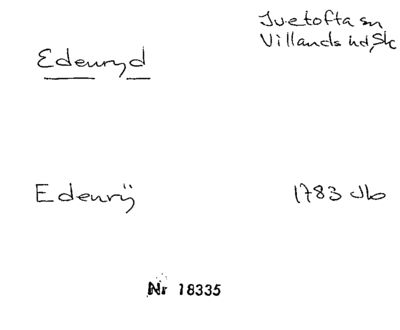 Ivetofta sn
Villands hd, Sk
Edenryd
Edenrÿ 1783 Jb
Nr 18335